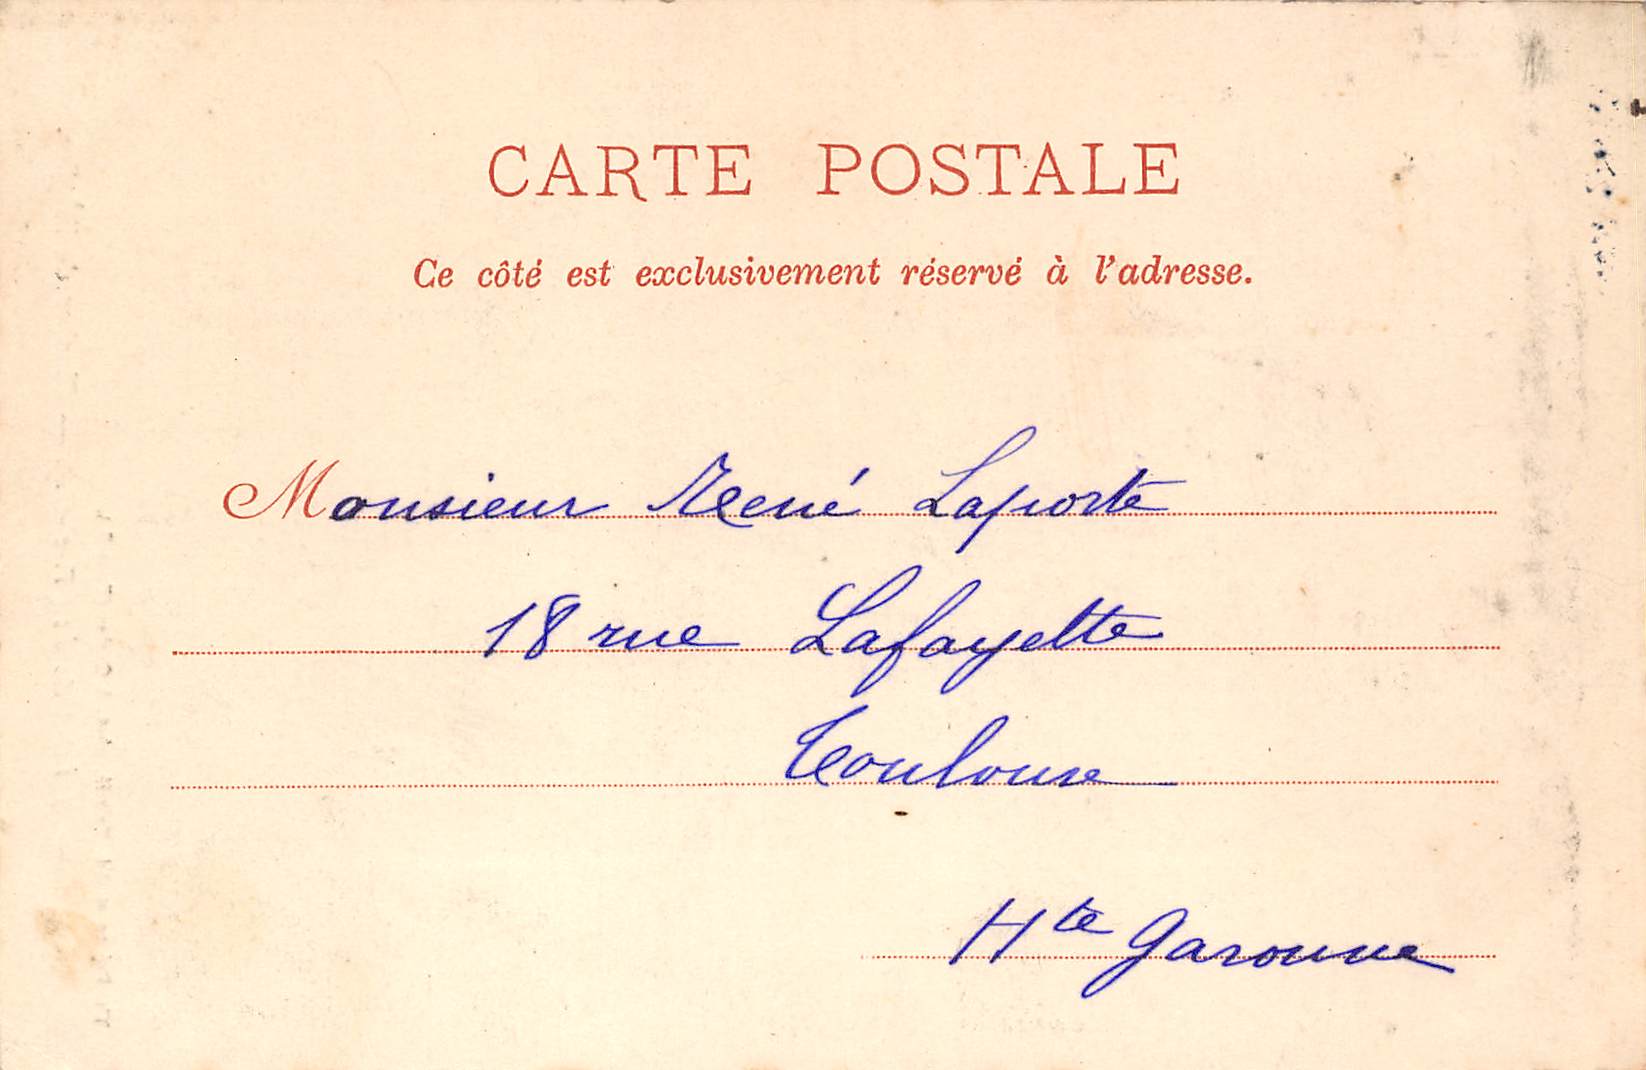 CARTE POSTALE
Ce côté est exclusivement réservé à l'adresse.
Monsieur René Laporte
18 rue Lafayette
Toulouse
Hte Garonne